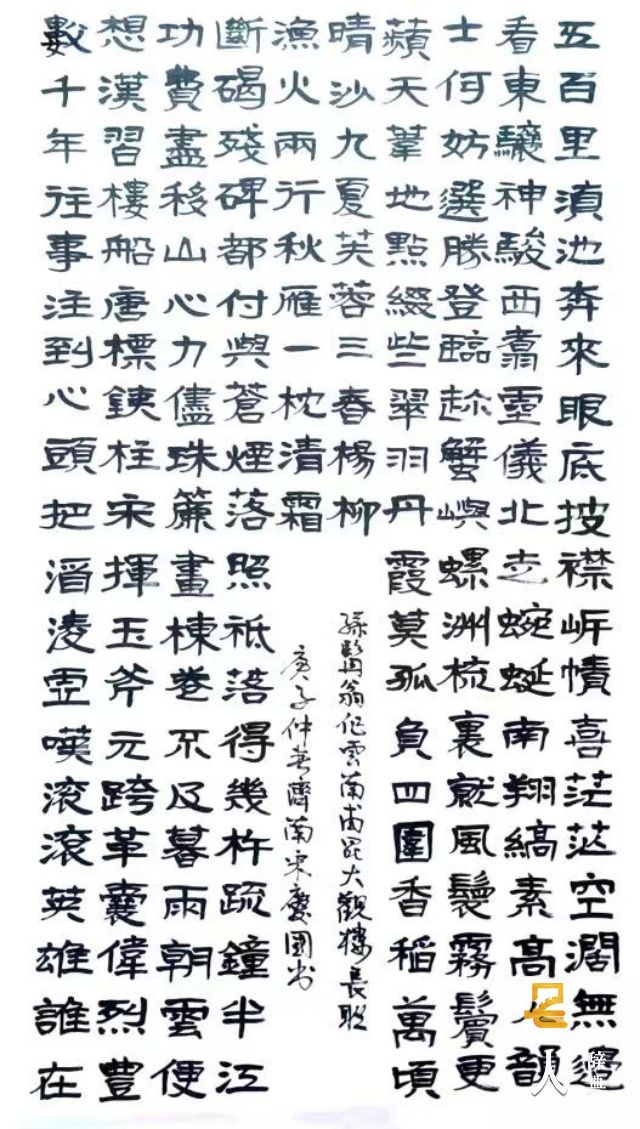 五百里滇池奔來眼底披襟岸幘喜茫茫空濶無邊
看東驤神駿西翥靈儀北走蜿蜒南翔縞素高人韻
士何妨選勝登臨趂蟹嶼螺洲梳裹就風鬟霧鬢更
蘋天葦地點綴些翠羽丹霞莫孤負四圍香稻萬頃
晴沙九夏芙蓉三春楊柳
孫髯翁作雲南昆大觀樓長聯
數千年往事注到心頭把酒凌虛嘆滾滾英雄誰在
想漢習樓船唐標銕柱宋揮玉斧元跨革囊偉烈豐
功費盡移山心力儘珠簾畫棟卷不及暮雨朝雲便
斷碣殘碑都付與蒼煙落照祗落得幾杵疏鐘半江
漁火兩行秋雁一枕清霜
庚子仲春濟南宋慶國書